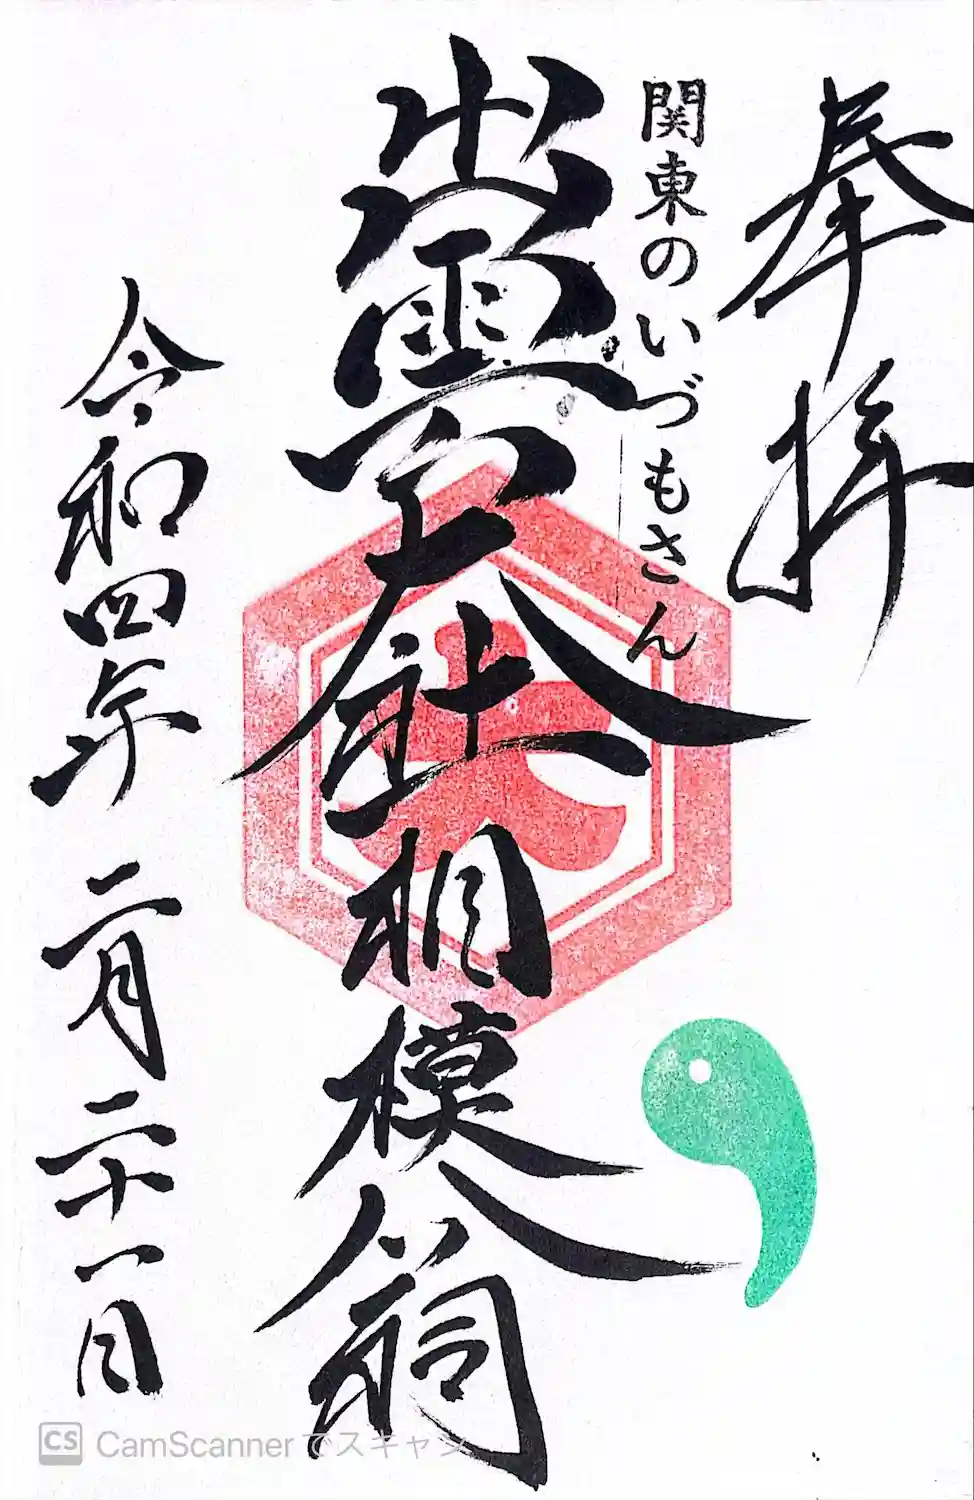 奉拝
関東のいづもさん
出雲大社相模分祠
令和四年二月二十一日
CS CamScannerでスキャン